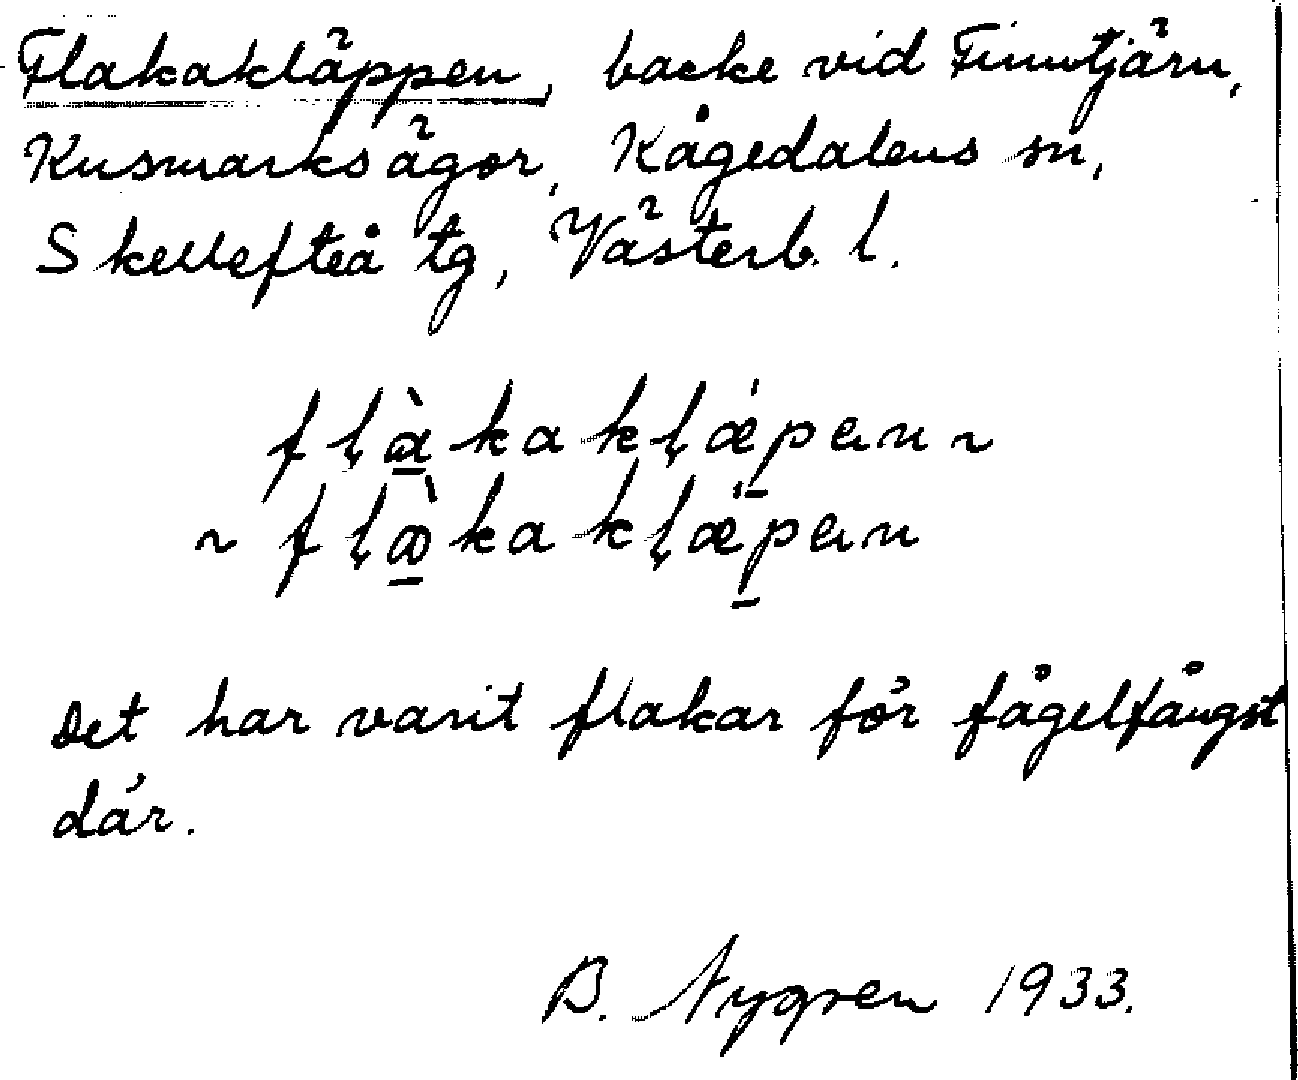 Flakakläppen, backe vid Finntjärn,
Kusmarks ägor, Kågedalens sn,
Skellefteå tg, Västerb. l.
flàkaklǽpen ~
~ flæ̀kaklǽpen
Det har varit flakar för fågelfångst
där.
B. Nygren 1933.